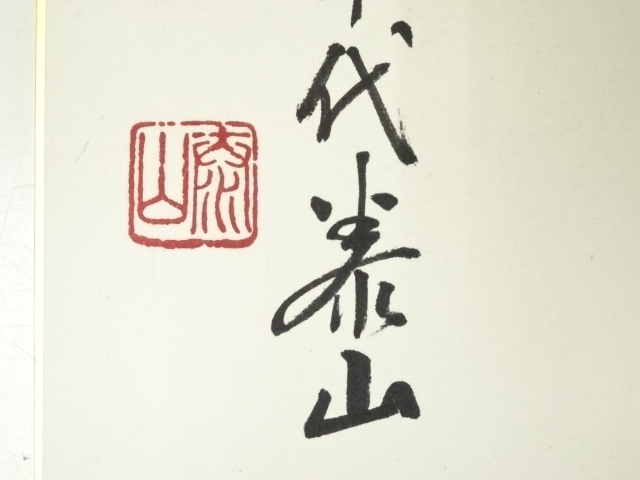 代泰山
泰山